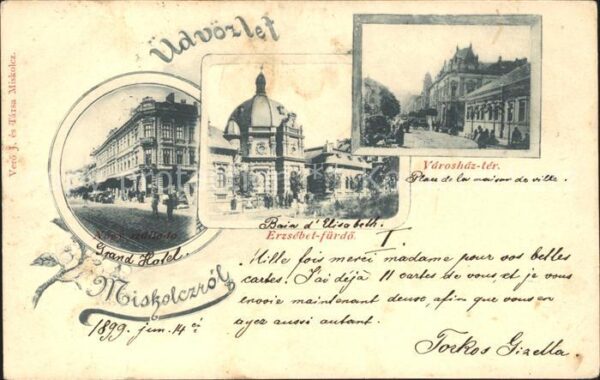 Üdvözlet
Verő J. és Társa Miskolcz.
Városház-tér.
Place de la maison de ville.
Bain d'Elisabeth.
Erzsébet-fürdő.
Grand Hotel.
Miskolczról
1899. jun. 14 én
Mille fois merci madame pour vos belles
cartes. J'ai déjà 11 cartes de vous, et je vous
envoie maintenant deuse, afin que vous en
ayez aussi autant.
Torkos Gizella.